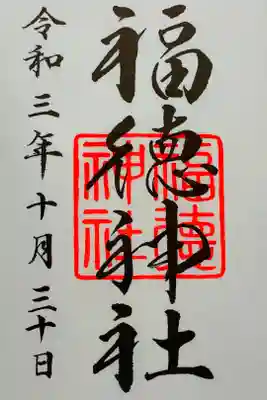 福徳神社
令和三年十月三十日
福徳
神社